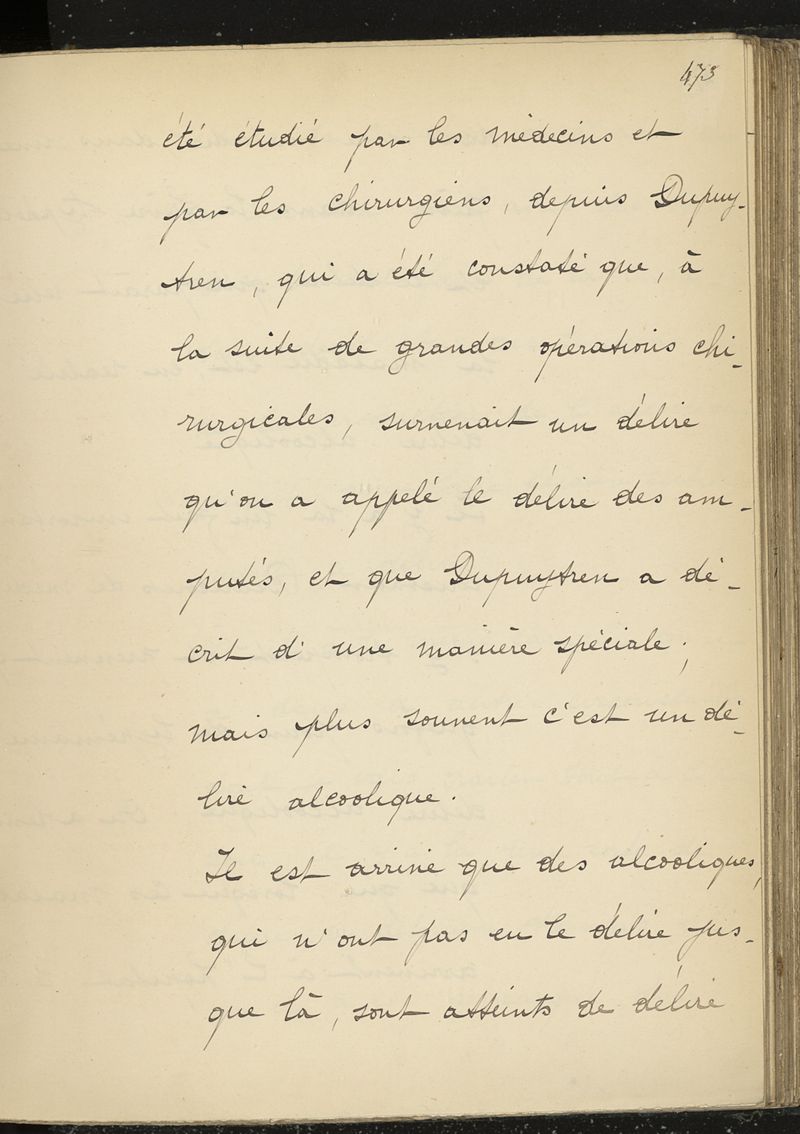 473
été étudié par les médecins et
par les chirurgiens, depuis Dupuy-
tren, qui a été constaté que, à
la suite de grandes opérations chi-
rurgicales, survenait un délire
qu'on a appelé le délire des am-
putés, et que Dupuytren a dé-
crit d'une manière spéciale;
mais plus souvent c'est un dé-
lire alcoolique.
Il est arrivé que des alcooliques,
qui n'ont pas eu le délire jus-
que là, sont atteints de délire